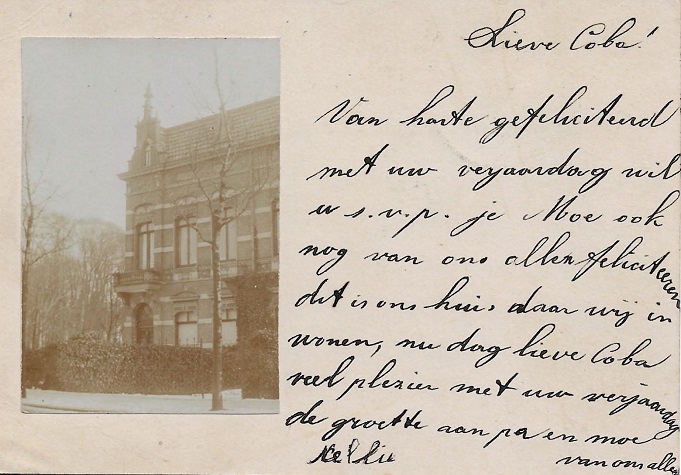 Lieve Coba!
Van harte gefeliciteerd
met uw verjaardag wil
u s.v.p. je Moe ook
nog van ons allen feliciteeren
dit is ons huis daar wij in
wonen, nu dag lieve Coba
veel plezier met uw verjaardag
de groette aan pa en moe
Nellie van ons allen